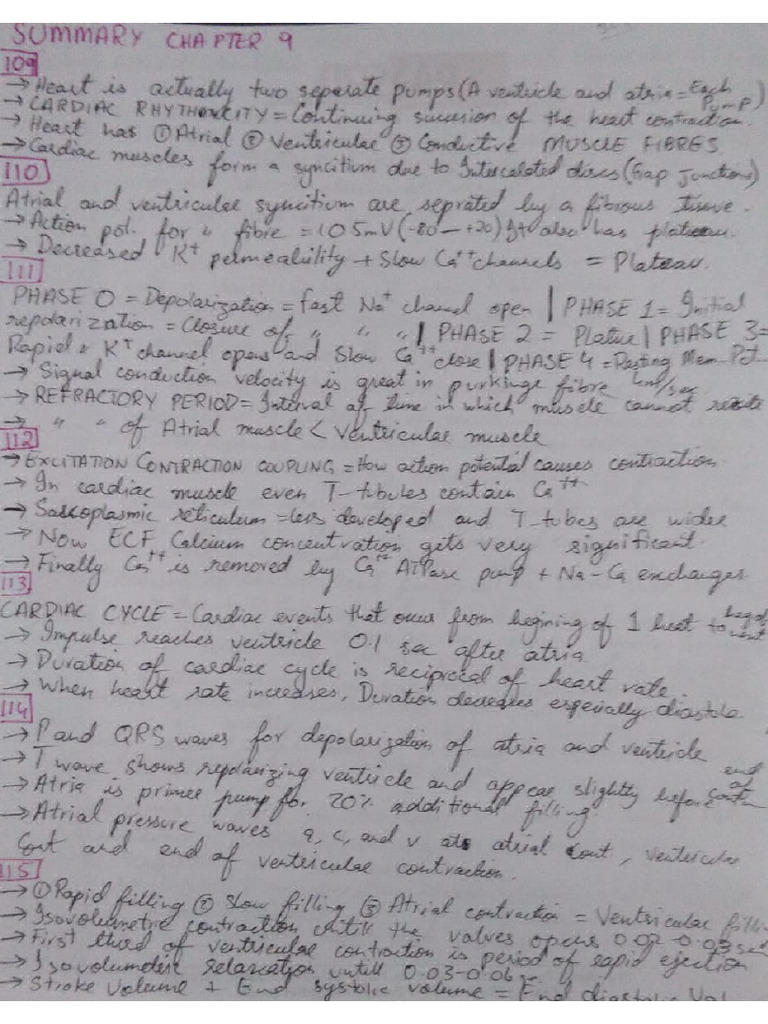 SUMMARY CHAPTER 9
109
→ Heart is actually two separate pumps (A ventricle and atria = Each Pump)
→ CARDIAC RHYTHMICITY = Continuing succession of the heart contraction.
→ Heart has ① Atrial ② Ventricular ③ Conductive MUSCLE FIBRES
→ Cardiac muscles form a syncitium due to Intercalated discs (Gap Junctions)
110
Atrial and ventricular syncitium are seprated by a fibrous tissue.
→ Action pot. for " fibre = 105mV (-80 — +20) It also has plateau.
→ Decreased K+ permeability + Slow Ca++ channels = Plateau.
111
PHASE 0 = Depolarization = fast Na+ channel open | PHASE 1 = Initial
repolarization = Closure of " " " | PHASE 2 = Platue | PHASE 3 =
Rapid K+ channel opens and Slow Ca++ close | PHASE 4 = Resting Mem. Pot.
→ Signal conduction velocity is great in purkinge fibre 4m/sec
→ REFRACTORY PERIOD = Interval of time in which muscle cannot
→ " " of Atrial muscle < Ventricular muscle
112
→ EXCITATION CONTRACTION COUPLING = How action potential causes contraction.
→ In cardiac muscle even T-tibules contain Ca++
→ Sarkoplasmic reticulum = less developed and T tubes are wider
→ Now ECF Calcium concentration gets very significant.
→ Finally Ca++ is removed by Ca++ ATPase pump + Na-Ca exchanger
113
CARDIAC CYCLE = Cardiac events that occur from begining of 1 beat to beg of next
→ Impulse reaches ventricle 0.1 sec after atria
→ Duration of cardiac cycle is reciprocal of heart rate.
→ When heart rate increases, Duration decreases especially diastole
114
→ P and QRS waves for depolarization of atria and ventricle
→ T wave shows repolarizing ventricle and appear slightly before end of contn
→ Atria is primer pump for 20% additional filling.
→ Atrial pressure waves a, c, and v at atrial cont, ventricular
Cont and end of ventricular contraction.
115
→ ① Rapid filling ② Slow filling ③ Atrial contraction = Ventricular filli
→ Isovolumetric contraction untill the valves opens 0.02-0.03 sec
→ First third of ventricular contraction is period of rapid ejection
→ Isovolumetric relaxation untill 0.03-0.06
→ Stroke volume + End systolic volume = End diastolic Vol